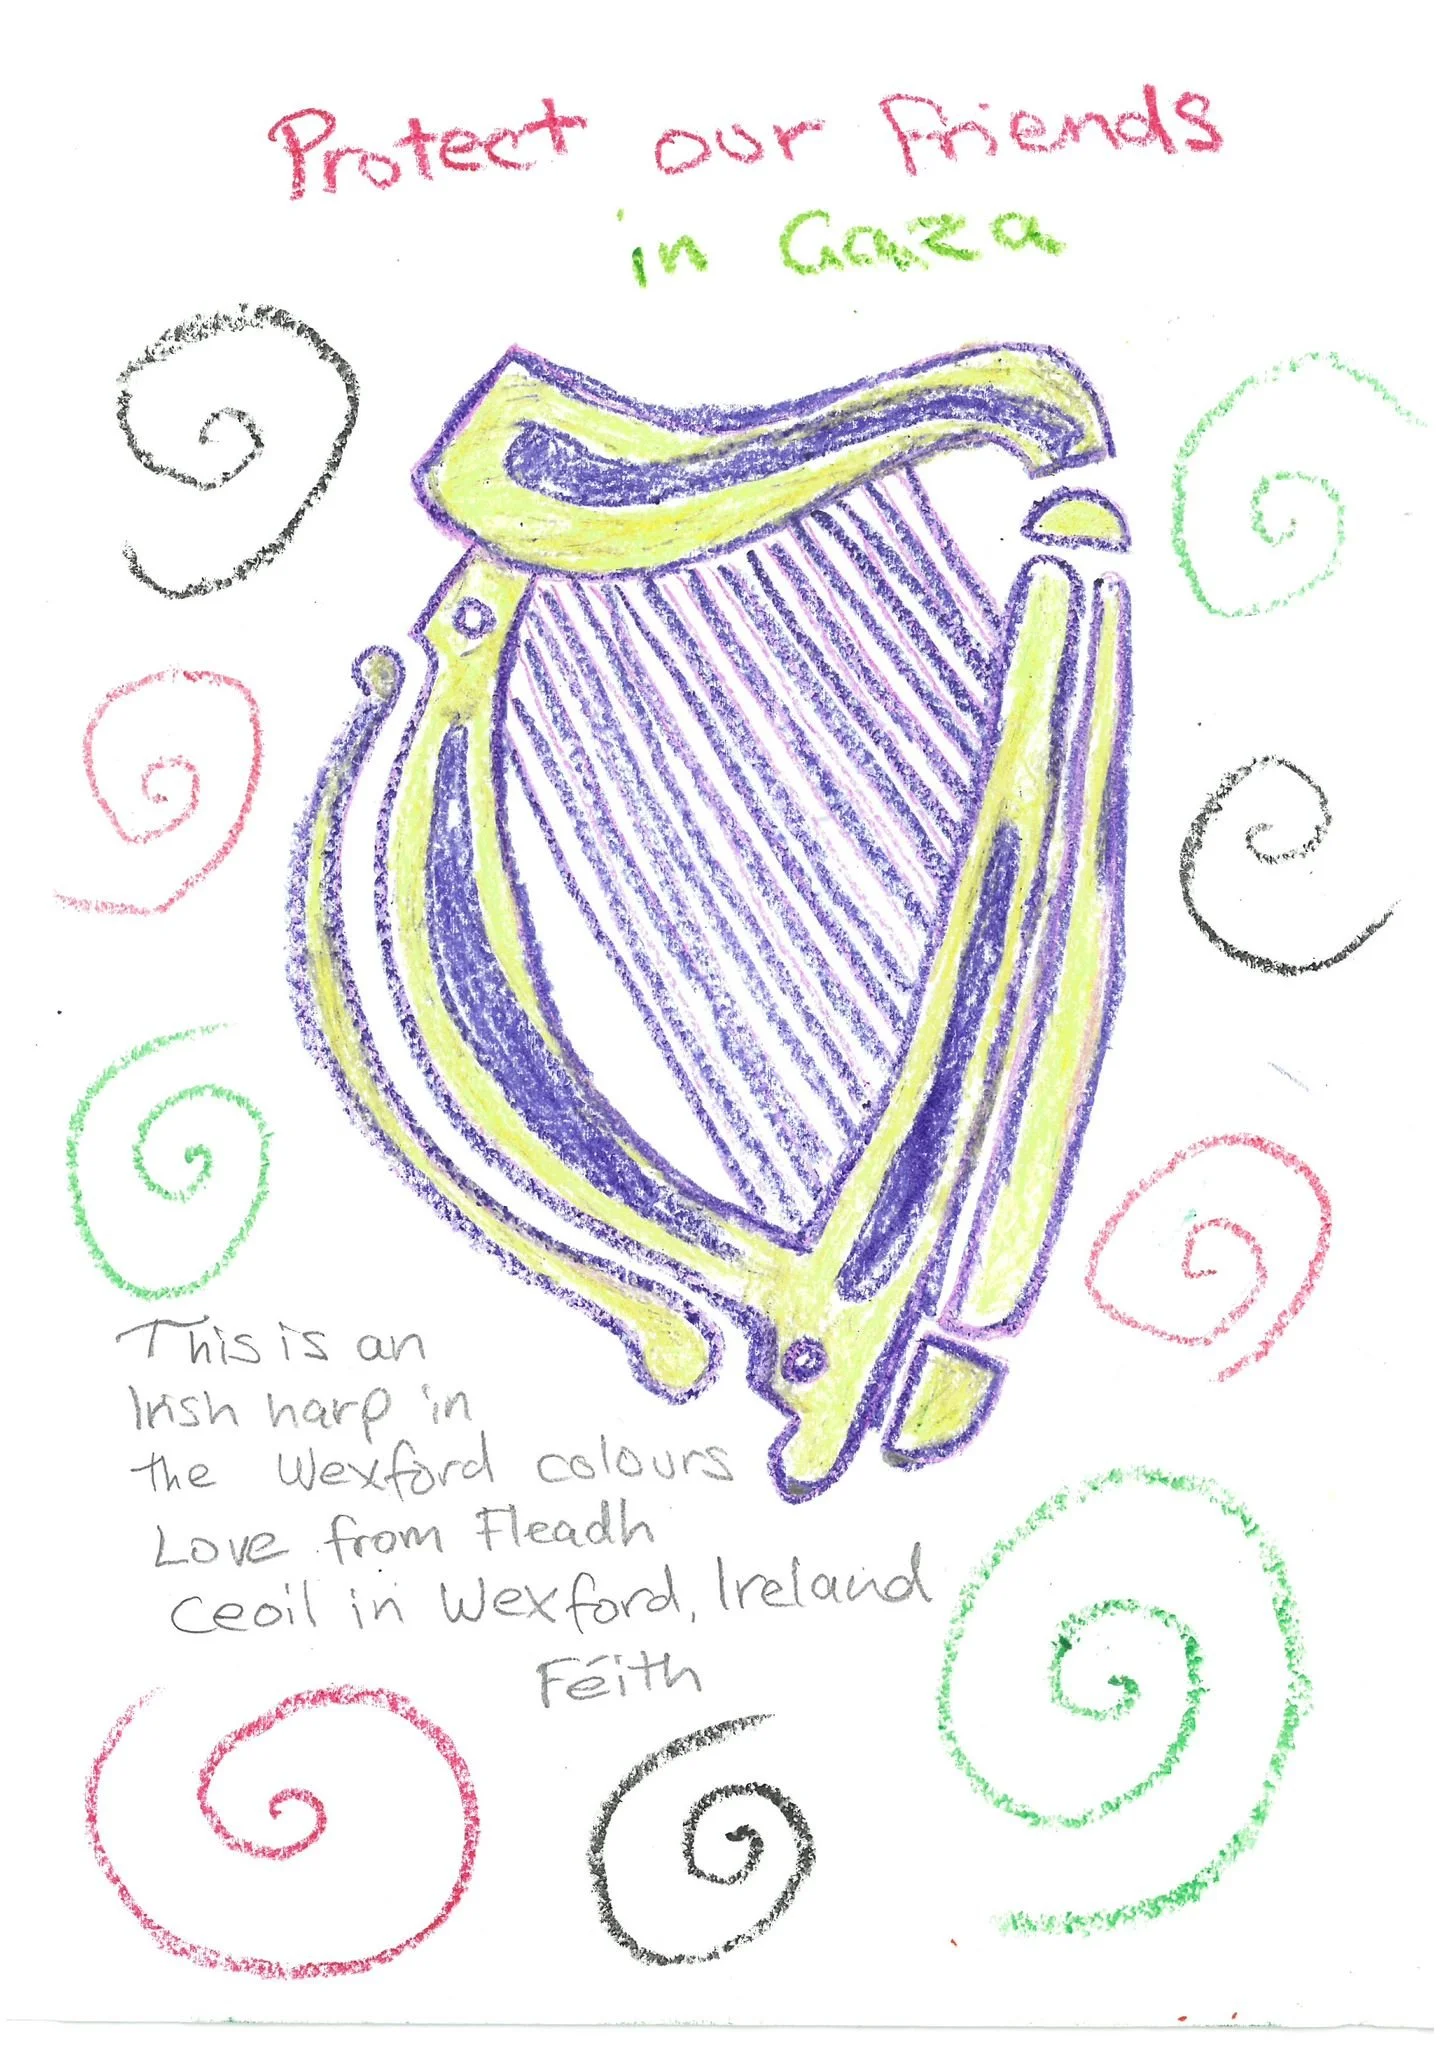 Protect our Friends
in Gaza
This is an
Irish harp in
the Wexford colours
Love from Fleadh
Ceoil in Wexford, Ireland
Féith